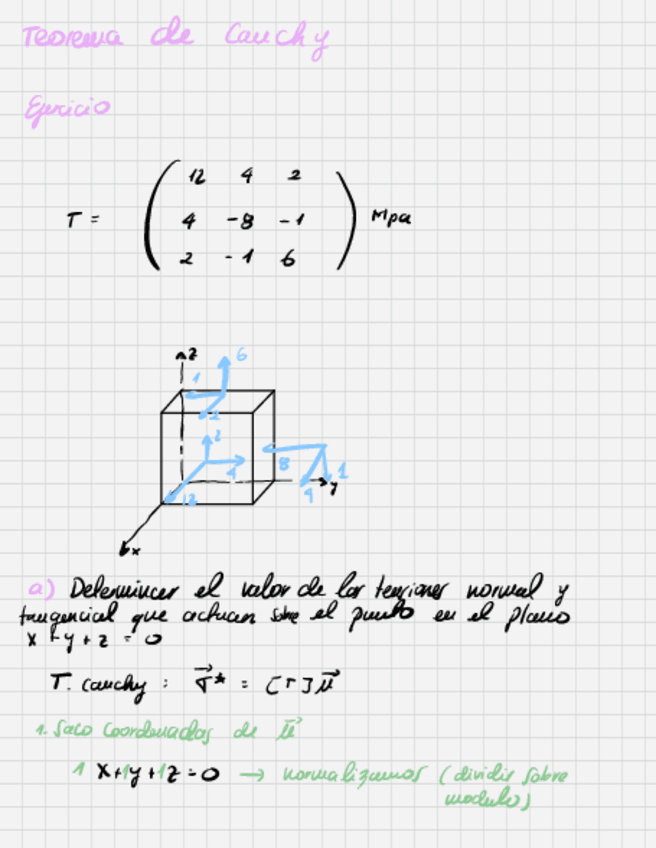 Teorema de Cauchy
Ejercicio
12 4 2
T = 4 -8 -1 Mpa
2 -1 6
z
6
1
2
2
4
8
1
4
12
y
x
a) Determinar el valor de las tensiones normal y
tangencial que actuan sobre el punto en el plano
x + y + z = 0
T. Cauchy : σ⃗* = [T] u⃗
1. Saco coordenadas de u⃗
1 x + 1y + 1z = 0 → normalizamos (dividir sobre
modulo)